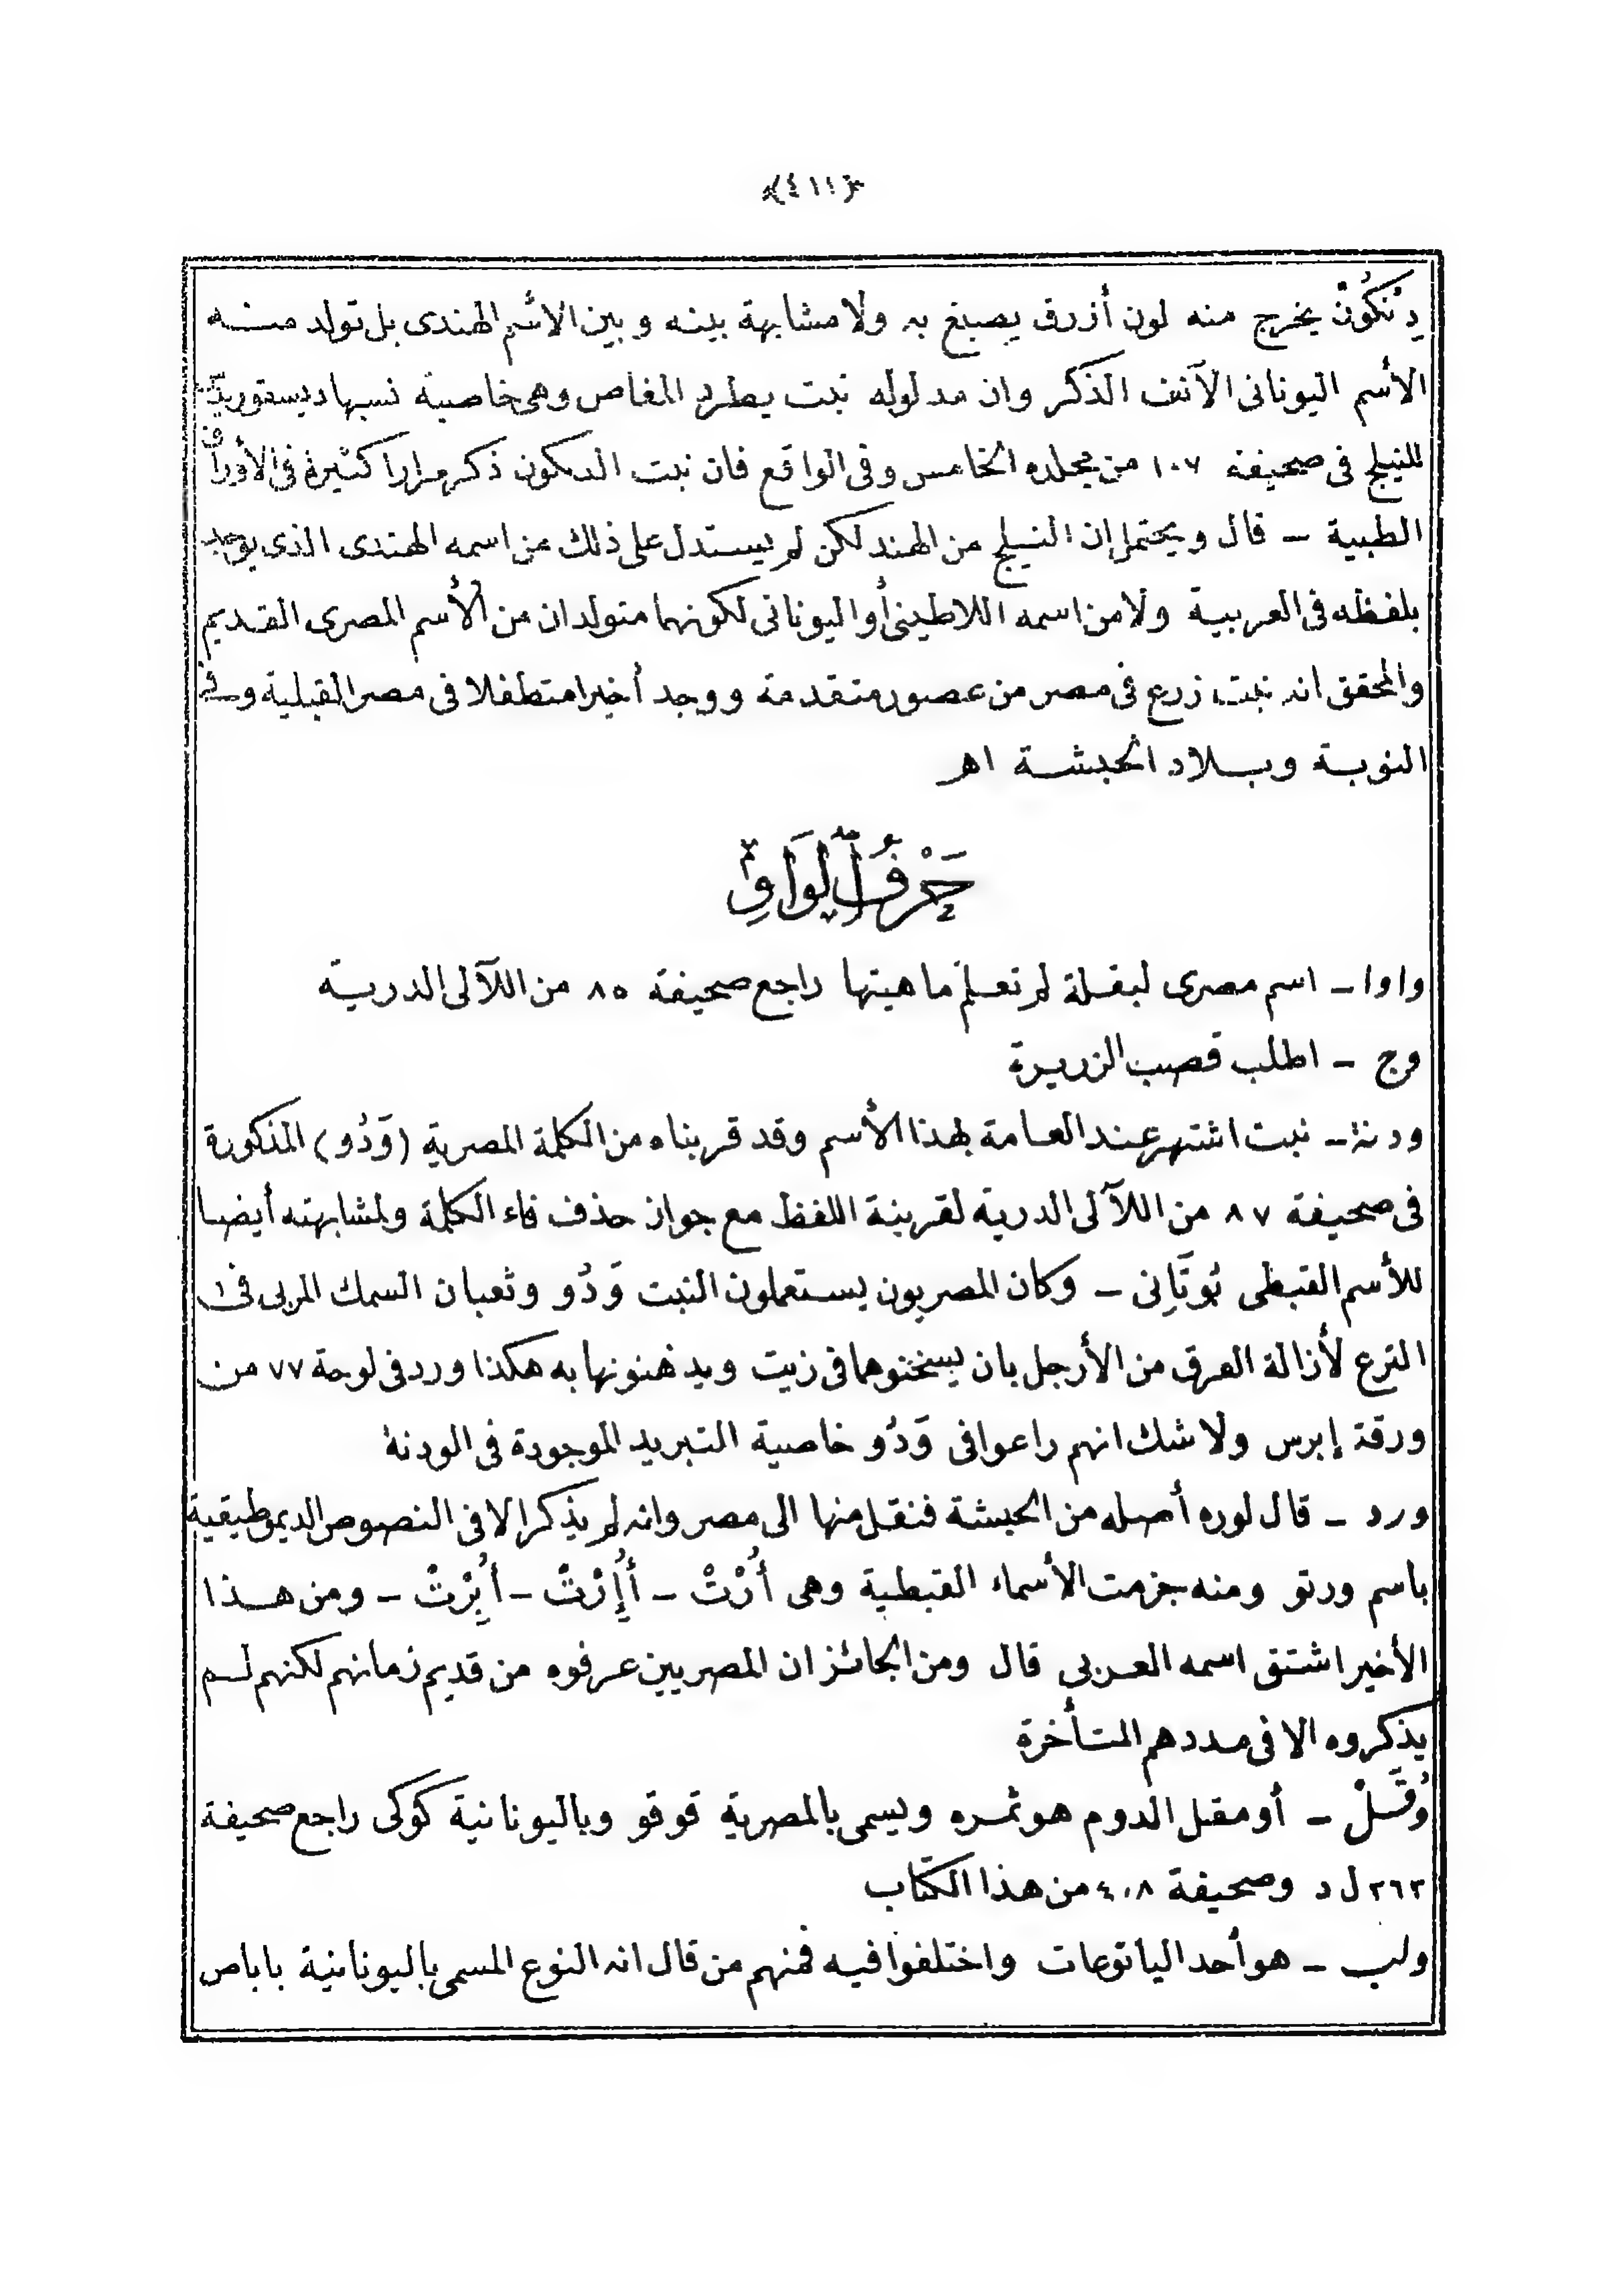 ﴿٤١١﴾
دِنْكُونْ يخرج منه لون أزرق يصبغ به ولا مشابهة بينه وبين الاسم الهندى بل تولد منه
الأسم اليونانى الآنف الذكر وان مدلوله نبت يطرد المغاص وهى خاصية نسبها ديسقوريدس
للنيلج فى صحيفة ١٠٧ من مجلده الخامس وفى الواقع فان نبت الدنكون ذكر مرارا كثيرة فى الأوراق
الطبية - قال ويحتمل إن النيلج من الهند لكن لم يستدل على ذلك من اسمه الهندى الذى يوجد
بلفظه فى العربية ولا من اسمه اللاطينى أو اليونانى لكونهما متولدان من الأسم المصرى القديم
والمحقق انه نبت زرع فى مصر من عصور متقدمة ووجد أخيرا متطفلا فى مصر القبلية وفى
النوبة وبلاد الحبشة اهـ
حَرْفُ الْوَاوِ
واوا - اسم مصرى لبقلة لم تعلم ماهيتها راجع صحيفة ٨٥ من اللآلى الدرية
وج - اطلب قصب الزريرة
ودنة - نبت اشتهر عند العامة بهذا الأسم وقد قربناه من الكلمة المصرية (وَدُو) المذكورة
فى صحيفة ٨٧ من اللآلى الدرية لقرينة اللفظ مع جواز حذف فاء الكلمة ولمشابهته أيضا
للأسم القبطى تُوتَانِى - وكان المصريون يستعملون النبت وَدُو وثعبان السمك المربى فى
الترع لأزالة العرق من الأرجل بان يسخنوهما فى زيت ويدهنونها به هكذا ورد فى لوحة ٧٧ من
ورقة إبرس ولا شك انهم راعوا فى وَدُو خاصية التبريد الموجودة فى الودنة
ورد - قال لوره أصله من الحبشة فنقل منها الى مصر وانه لم يذكر الا فى النصوص الديموطيقية
باسم ورتو ومنه جزمت الأسماء القبطية وهى أُرْتْ - أُإِرْتْ - أُيِرْتْ - ومن هذا
الأخير اشتق اسمه العربى قال ومن الجائز ان المصريين عرفوه من قديم زمانهم لكنهم لم
يذكروه الا فى مددهم المتأخرة
وُقَلْ - أو مقل الدوم هو ثمره ويسمى بالمصرية قوقو وباليونانية كوكى راجع صحيفة
٢٦٣ ل د وصحيفة ٤٠٨ من هذا الكتاب
ولب - هو أحد اليأتوعات واختلفوا فيه فمنهم من قال انه النوع المسمى باليونانية باباص